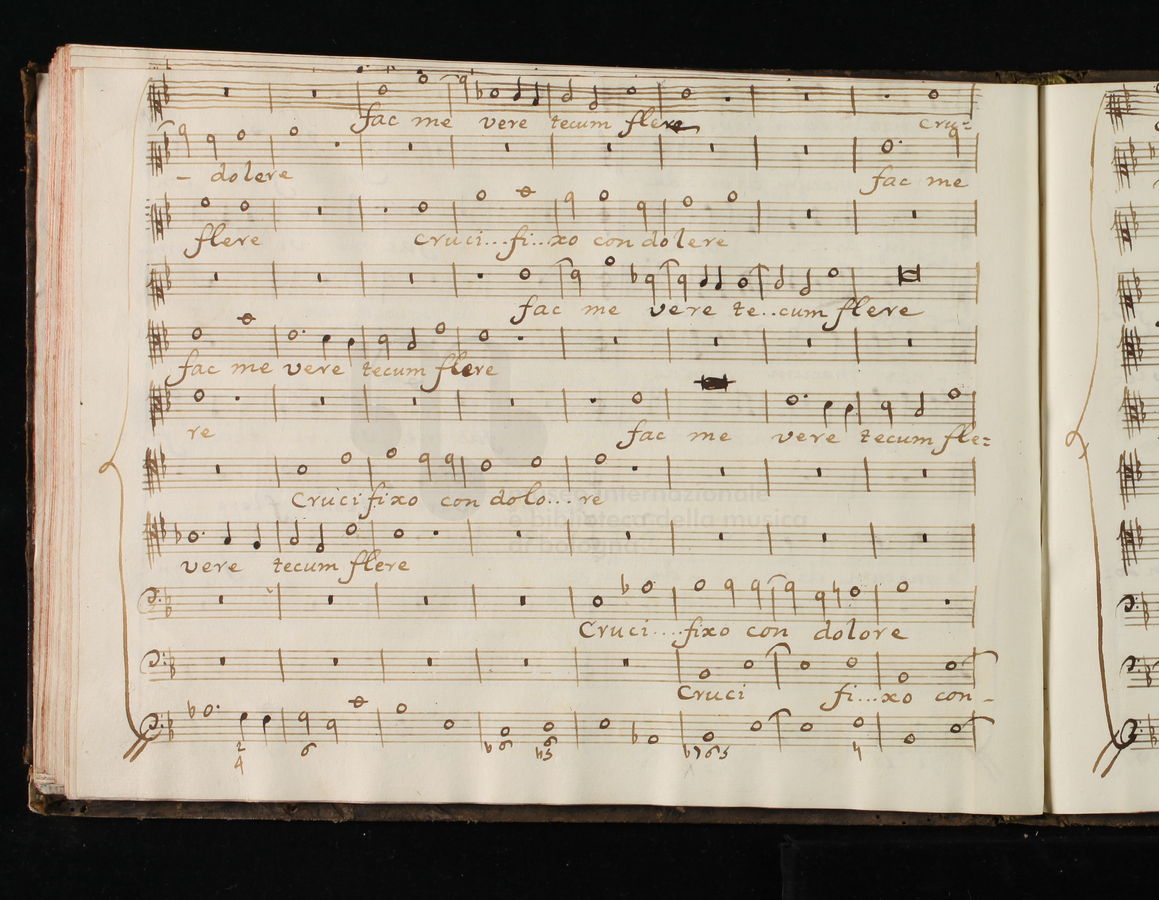 fac me vere tecum flere cru=
- dolere fac me
flere Cruci...fi...xo con dolere
fac me vere te..cum flere
fac me vere tecum flere
re fac me vere tecum fle=
Crucifixo con dolo...re
museo internazionale
e biblioteca della musica
di bologna
vere tecum flere
Cruci....fixo con dolore
Cruci fi...xo con-
2
4
6
♭6
♮3
♭7 6 5
♮